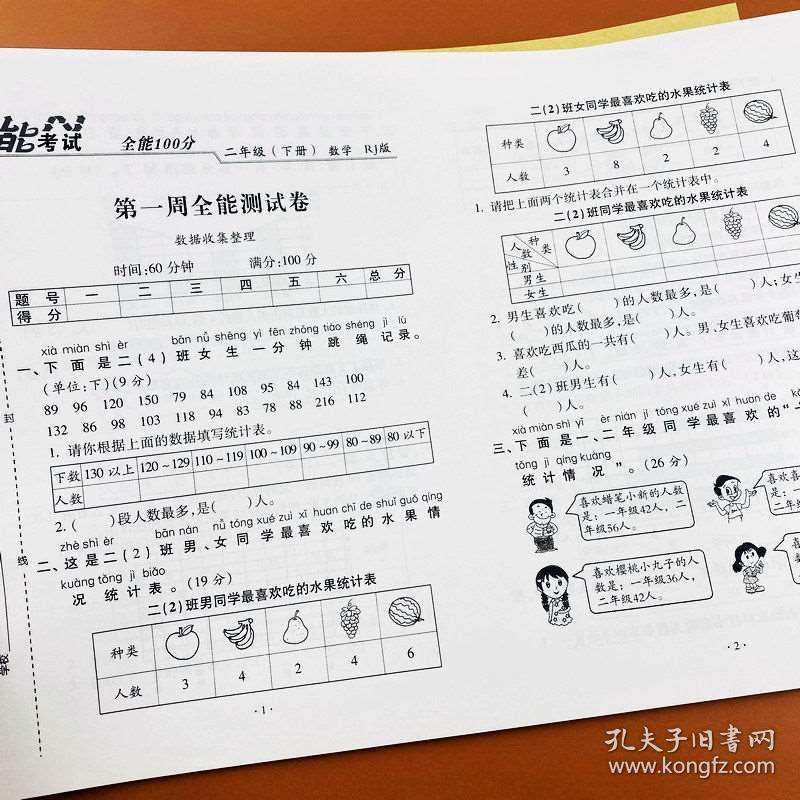 能考试
全能100分
二年级(下册) 数学 RJ版
第一周全能测试卷
数据收集整理
时间:60分钟 满分:100分
题号 一 二 三 四 五 六 总分
得分
xià miàn shì èr bān nǚ shēng yì fēn zhōng tiào shéng jì lù
一、下面是二(4)班女生一分钟跳绳记录。
(单位:下)(9分)
89 96 120 150 79 84 108 95 84 143 100
132 86 98 103 118 94 83 78 88 216 112
1. 请你根据上面的数据填写统计表。
下数 130以上 120~129 110~119 100~109 90~99 80~89 80以下
人数
2. ( )段人数最多,是( )人。
zhè shì èr bān nán nǚ tóng xué zuì xǐ huan chī de shuǐ guǒ qíng
二、这是二(2)班男、女同学最喜欢吃的水果情
kuàng tǒng jì biǎo
况统计表。(19分)
二(2)班男同学最喜欢吃的水果统计表
种类
人数 3 4 2 4 6
·1·
封
线
学校
二(2)班女同学最喜欢吃的水果统计表
种类
人数 3 8 2 2 4
1. 请把上面两个统计表合并在一个统计表中。
二(2)班同学最喜欢吃的水果统计表
人数 种类
性别
男生
女生
2. 男生喜欢吃( )的人数最多,是( )人;女生
( )的人数最多,是( )人。
3. 喜欢吃西瓜的一共有( )人。男、女生喜欢吃葡萄
差( )人。
4. 二(2)班男生有( )人,女生有( )人,这
( )人。
xià miàn shì yī èr nián jí tóng xué zuì xǐ huan de
三、下面是一、二年级同学最喜欢的“
tǒng jì qíng kuàng
统计情况”。(26分)
喜欢蜡笔小新的人数
是:一年级42人,二
年级56人。
喜欢
是:
年级
喜欢樱桃小丸子的人
数是:一年级36人,
二年级42人。
·2·
孔夫子旧书网
www.kongfz.com